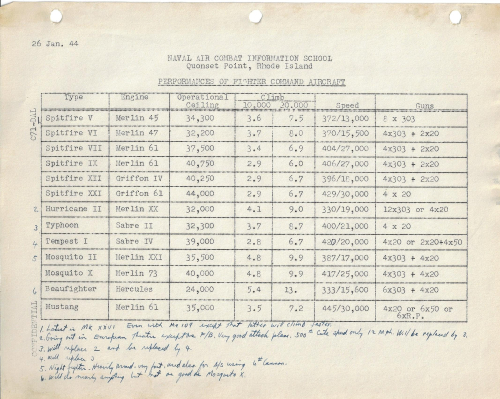 26 Jan. 44
NAVAL AIR COMBAT INFORMATION SCHOOL
Quonset Point, Rhode Island
PERFORMANCES OF FIGHTER COMMAND AIRCRAFT
Type Engine Operational Ceiling Climb 10,000 20,000 Speed Guns
Spitfire V Merlin 45 34,300 3.6 7.5 372/13,000 8 x 303
Spitfire VI Merlin 47 32,200 3.7 8.0 370/15,500 4x303 + 2x20
Spitfire VII Merlin 61 37,500 3.4 6.9 404/27,000 4x303 + 2x20
Spitfire IX Merlin 61 40,750 2.9 6.0 406/27,000 4x303 + 2x20
Spitfire XII Griffon IV 40,250 2.9 6.7 396/18,000 4x303 + 2x20
Spitfire XXI Griffon 61 44,000 2.9 6.7 429/30,000 4 x 20
2 Hurricane II Merlin XX 32,000 4.1 9.0 330/19,000 12x303 or 4x20
3 Typhoon Sabre II 32,300 3.7 8.7 400/21,000 4 x 20
4 Tempest I Sabre IV 39,000 2.8 6.7 420/20,000 4x20 or 2x20+4x50
5 Mosquito II Merlin XXI 35,500 4.8 9.9 387/17,000 4x303 + 4x20
Mosquito X Merlin 73 40,000 4.8 9.9 417/25,000 4x303 + 4x20
6 Beaufighter Hercules 24,000 5.4 13. 333/15,600 6x303 + 4x20
Mustang Merlin 61 35,000 3.5 7.2 445/30,000 4x20 or 6x50 or
6xR.P.
1. Latest is Mk XXVI Even with Me 109 except that latter will climb faster.
2. Going out in European theatre except as F/B. Very good attack plane. 500# speed only 12 mph. Will be replaced by 3.
3. Will replace 2 and be replaced by 4.
4. Will replace 3
5. Night fighter. Heavily armed, very fast, and also for A/S using 6# cannon.
6. Will do nearly anything but not as good as Mosquito X.
CONFIDENTIAL